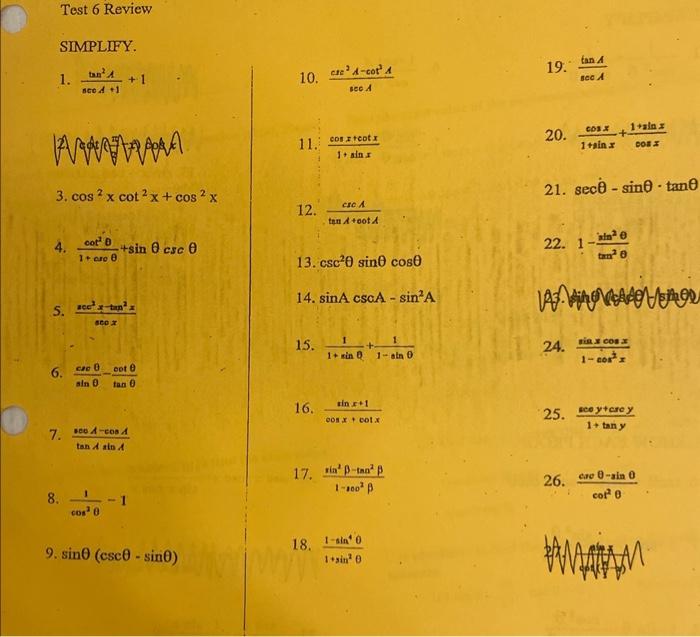 Test 6 Review
SIMPLIFY.
1. tan² A / sec A +1 + 1
3. cos ² x cot ² x + cos ² x
4. cot² θ / 1 + csc θ + sin θ csc θ
5. sec² x - tan² x / sec x
6. csc θ / sin θ - cot θ / tan θ
7. sec A - cos A / tan A sin A
8. 1 / cos² θ - 1
9. sinθ (cscθ - sinθ)
10. csc² A - cot² A / sec A
11. cos x + cot x / 1 + sin x
12. csc A / tan A + cot A
13. csc²θ sinθ cosθ
14. sinA cscA - sin²A
15. 1 / 1 + sin θ + 1 / 1 - sin θ
16. sin x + 1 / cos x + cot x
17. sin² β - tan² β / 1 - sec² β
18. 1 - sin⁴ θ / 1 + sin² θ
19. tan A / sec A
20. cos x / 1 + sin x + 1 + sin x / cos x
21. secθ - sinθ · tanθ
22. 1 - sin² θ / tan² θ
24. sin x cos x / 1 - cos² x
25. sec y + csc y / 1 + tan y
26. csc θ - sin θ / cot² θ